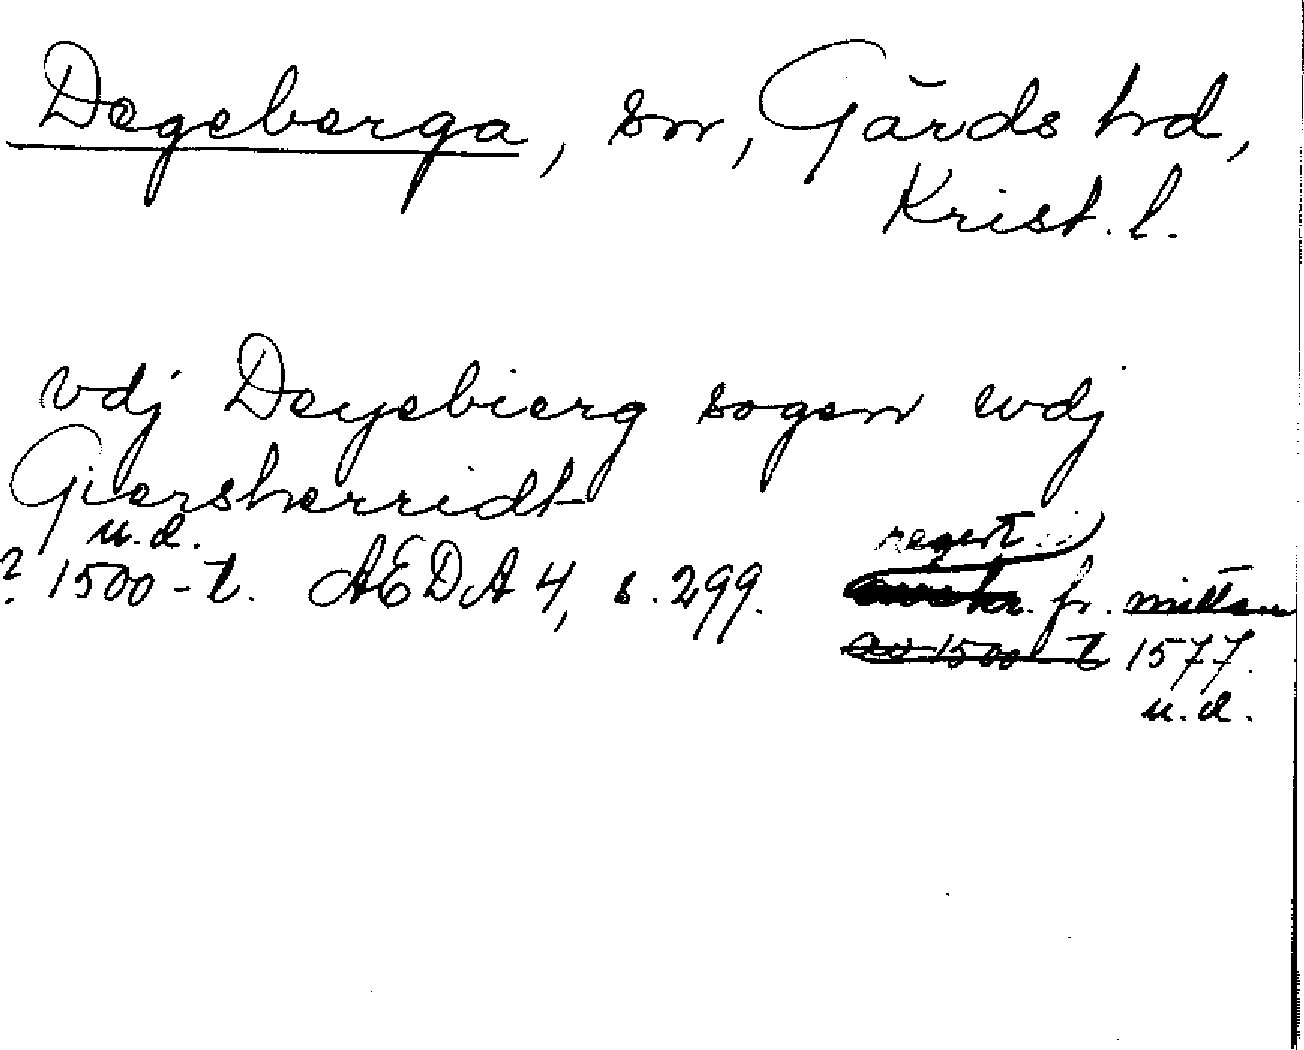 Degeberga, sn, Gärds hd,
Krist. l.
vdj Deyebierg sogen vdj
Giersherridt
u. d.
? 1500-t. AEDA 4, s. 299. regist
avskr. fr. mitten
av 1500-t 1577.
u. d.